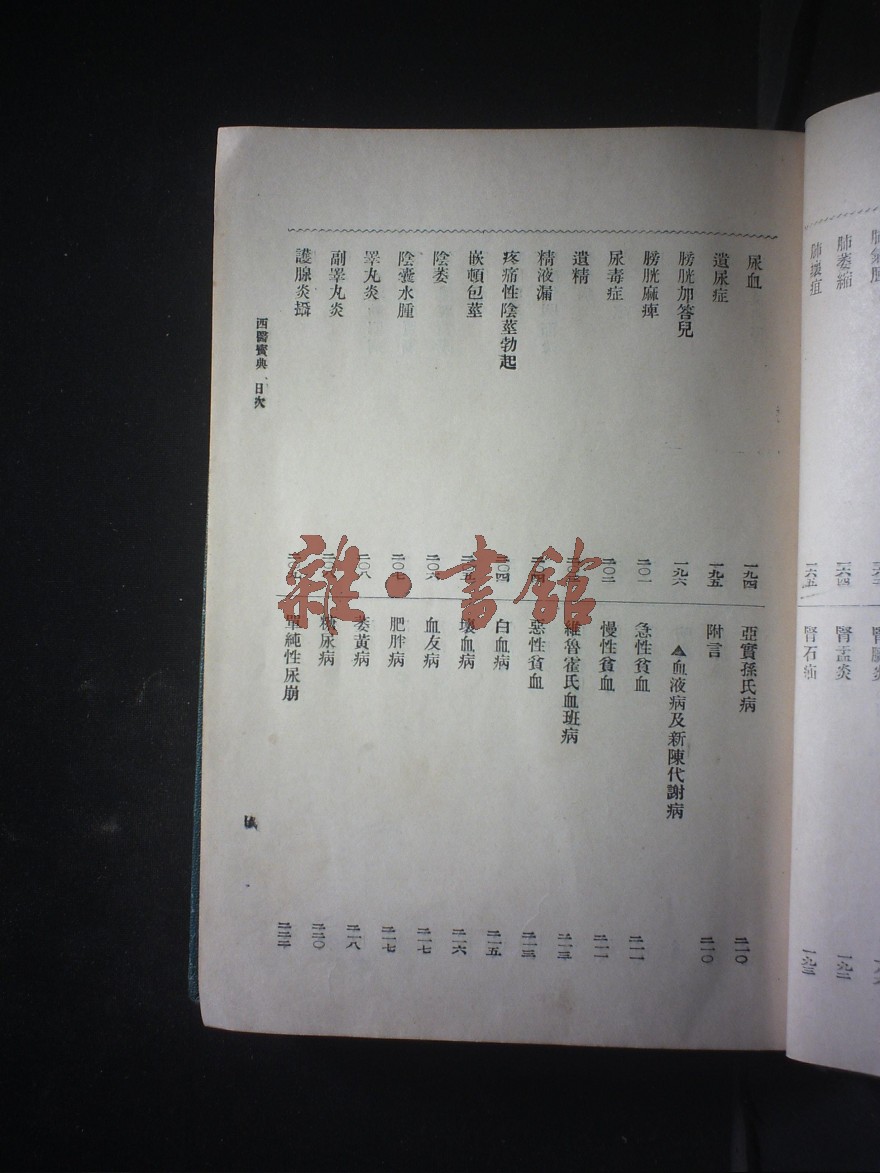 肺萎縮
一六四
肺壞疽
一六五
腎盂炎
一九二
腎石
一九三
尿血
一九四
遺尿症
一九五
膀胱加答兒
一九六
膀胱麻痺
二〇一
尿毒症
二〇二
遺精
精液漏
疼痛性陰莖勃起
二〇四
嵌頓包莖
陰萎
二〇六
陰囊水腫
二〇七
睪丸炎
二〇八
副睪丸炎
護腺炎
亞實孫氏病
二一〇
附言
二一〇
▲血液病及新陳代謝病
急性貧血
二一一
慢性貧血
二一一
維魯霍氏血班病
二一三
惡性貧血
二一三
白血病
二一五
壞血病
二一六
血友病
二一七
肥胖病
二一七
萎黃病
二一八
糖尿病
二二〇
單純性尿崩
二二二
西醫寶典 目次
雜·書館